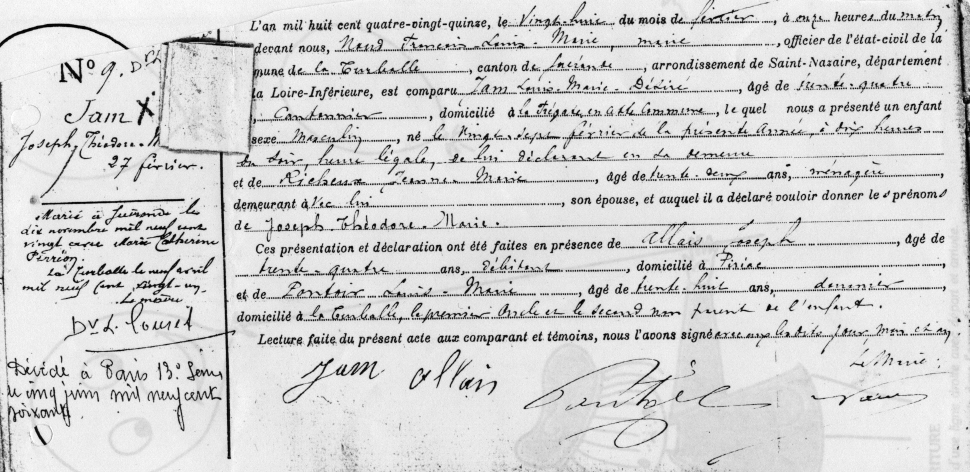 N° 9.
Jam
Joseph, Théodore-M
27 février.
Marié à Guérande le
dix novembre mil neuf cent
vingt Marie Catherine
Perrion.
La Turballe le neuf avril
mil neuf cent vingt-un.
Le maire
Dr L.
Décédé à Paris 13e Seine
le cinq juin mil neuf cent
soixante
L'an mil huit cent quatre-vingt-quinze, le vingt huit du mois de février, à onze heures du matin
devant nous, François Louis-Marie, maire, officier de l'état-civil de la
mune de la Turballe, canton de Guérande, arrondissement de Saint-Nazaire, département
la Loire-Inférieure, est comparu Jam Louis-Marie-Désiré, âgé de trente-quatre
, Cantonnier, domicilié à en cette Commune, le quel nous a présenté un enfant
sexe Masculin, né le vingt sept février de la présente Année, à dix heures
du soir, heure légale, de lui déclarant en sa demeure
et de Richeux Jeanne-Marie, âgé de trente-deux ans, ménagère
demeurant avec lui, son épouse, et auquel il a déclaré vouloir donner les prénoms
de Joseph-Théodore-Marie.
Ces présentation et déclaration ont été faites en présence de Allais Joseph, âgé de
trente-quatre ans, débitant, domicilié à Piriac
et de Louis-Marie, âgé de trente-huit ans, douanier,
domicilié à la Turballe, le premier Oncle et le second non parent de l'enfant.
Lecture faite du présent acte aux comparant et témoins, nous l'avons signé avec eux lesdits jour, mois et an
Le Maire.
Jam Allais